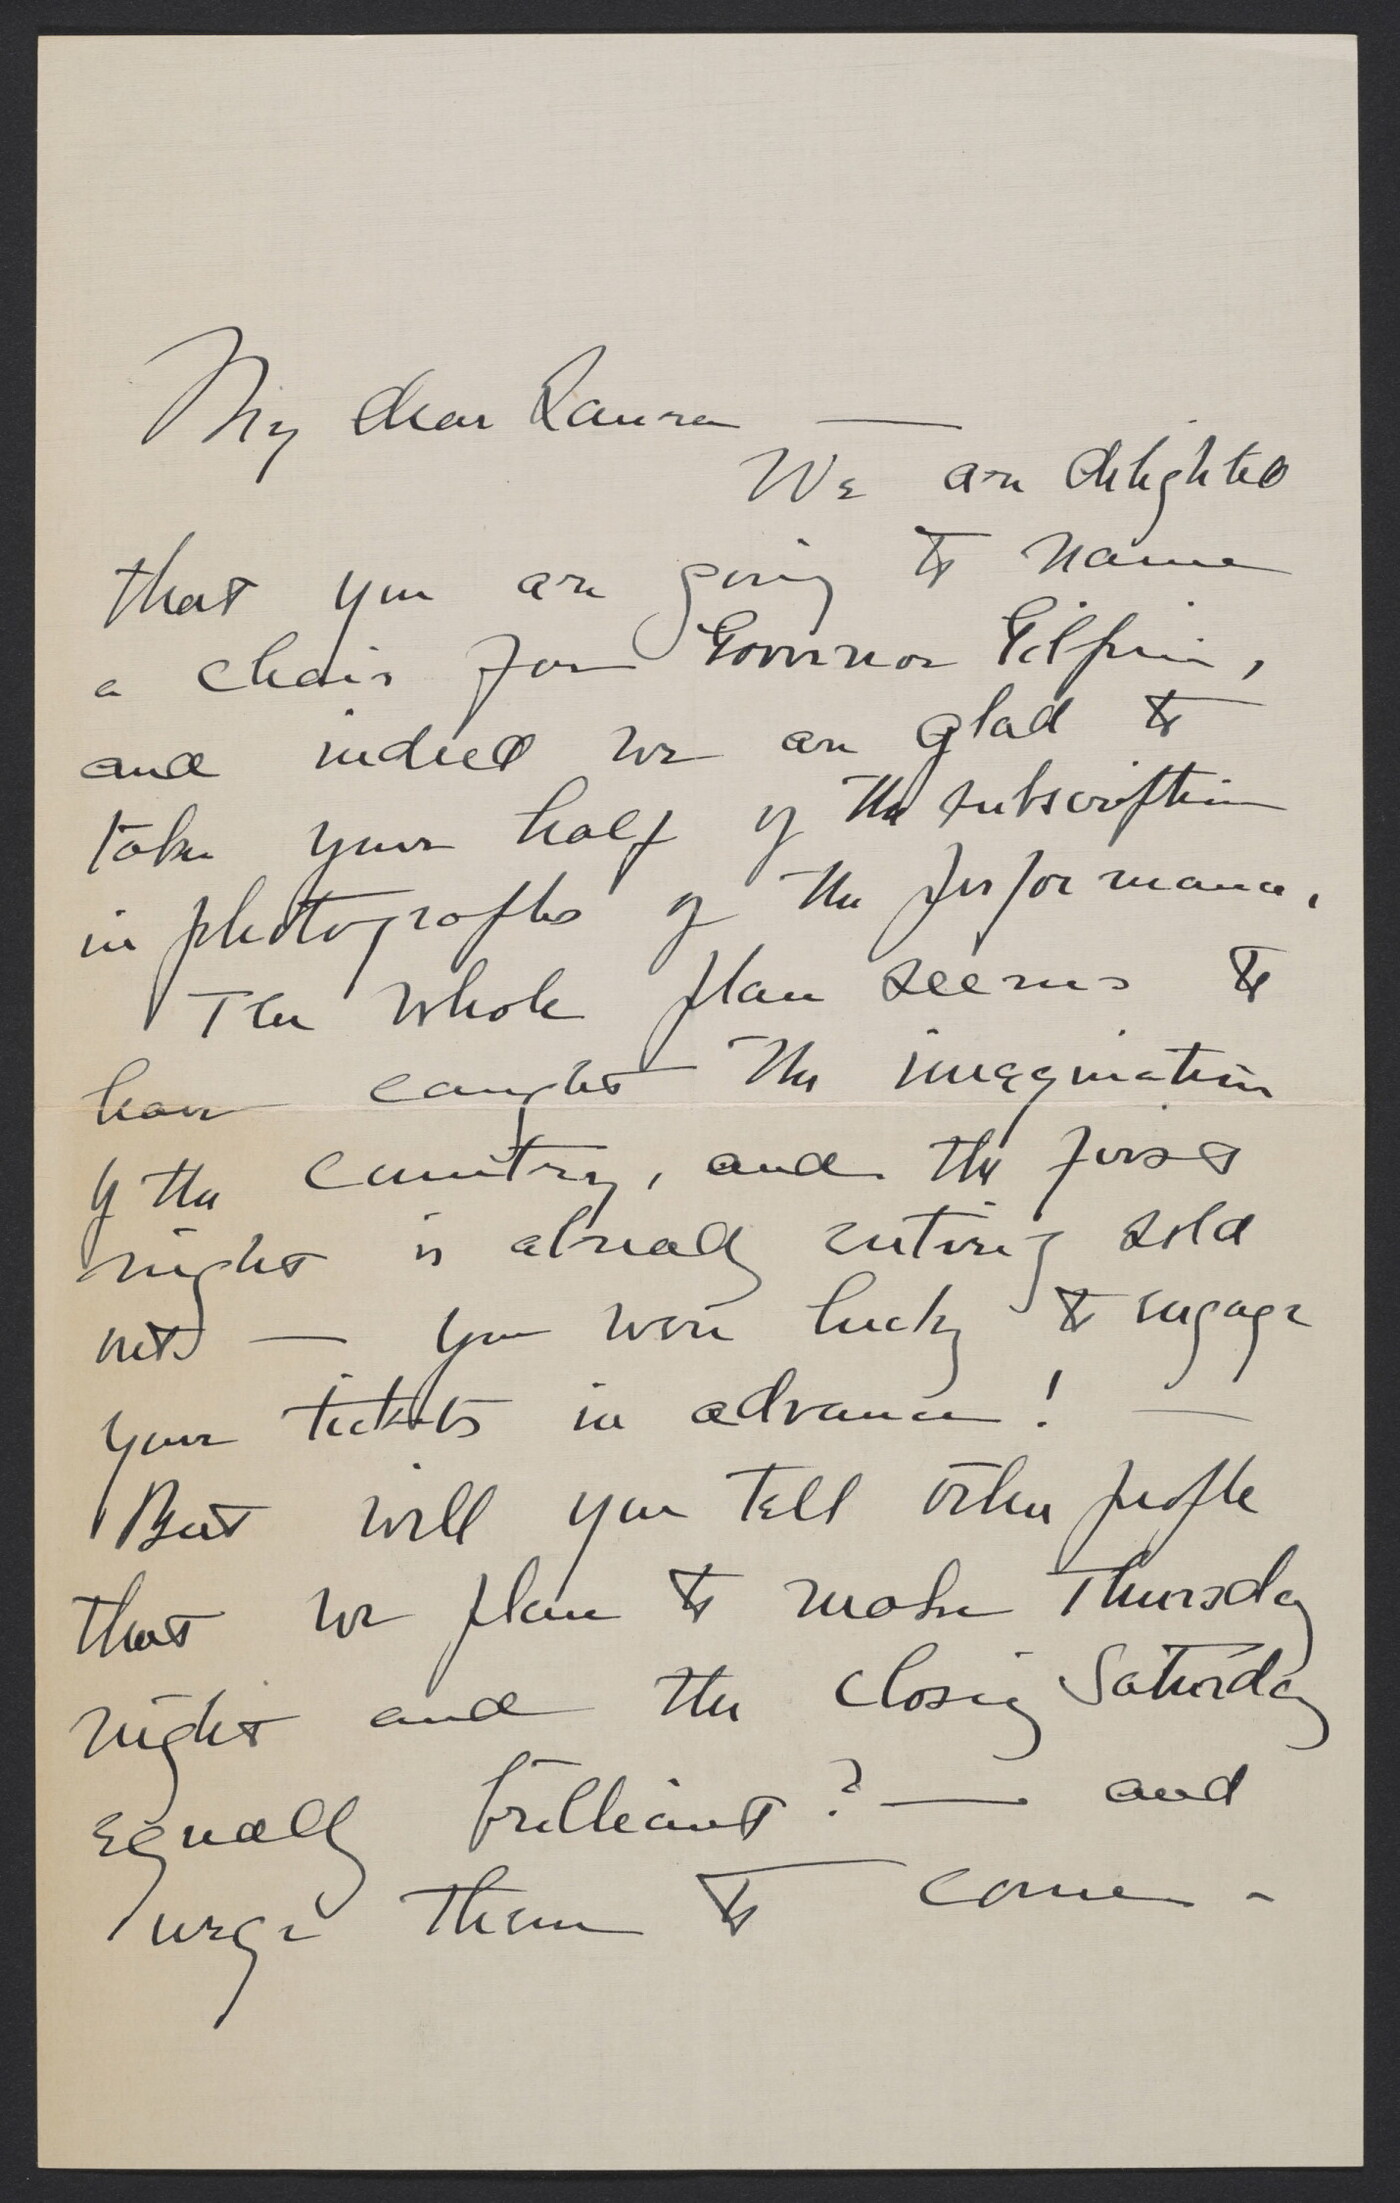 My dear Laura —
We are delighted
that you are going to name
a chair for Governor Gilpin,
and indeed we are glad to
take your half of the subscription
in photographs of the performance.
The whole plan seems to
have caught the imagination
of the country, and the first
night is already entirely sold
out — you were lucky to engage
your tickets in advance! —
But will you tell other people
that we plan to make Thursday
night and the closing Saturday
equally brilliant? — and
urge them to come -